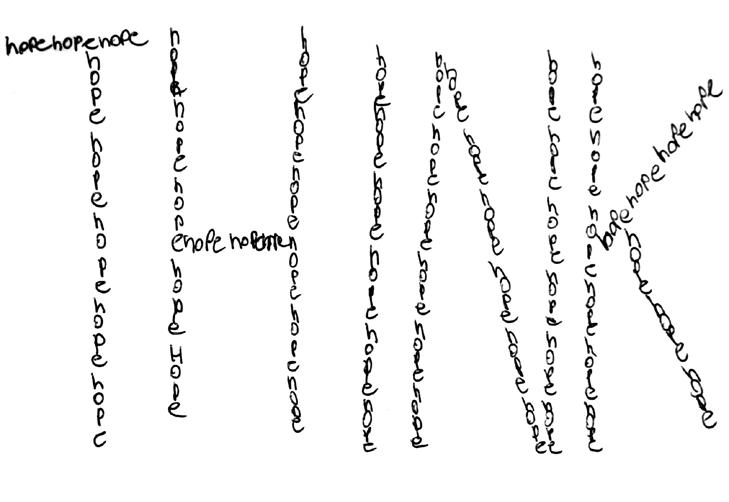 hopehopehope
hope hope hope hope hope
hope hope hope hope Hope
hope hope
hope hope hope hope hope hope
hope hope hope hope hope hope
hope hope hope hope hope hope
hope hope hope hope hope hope
hope hope hope hope hope hope
hope hope hope hope hope hope
hope hope hope hope
hope hope hope hope